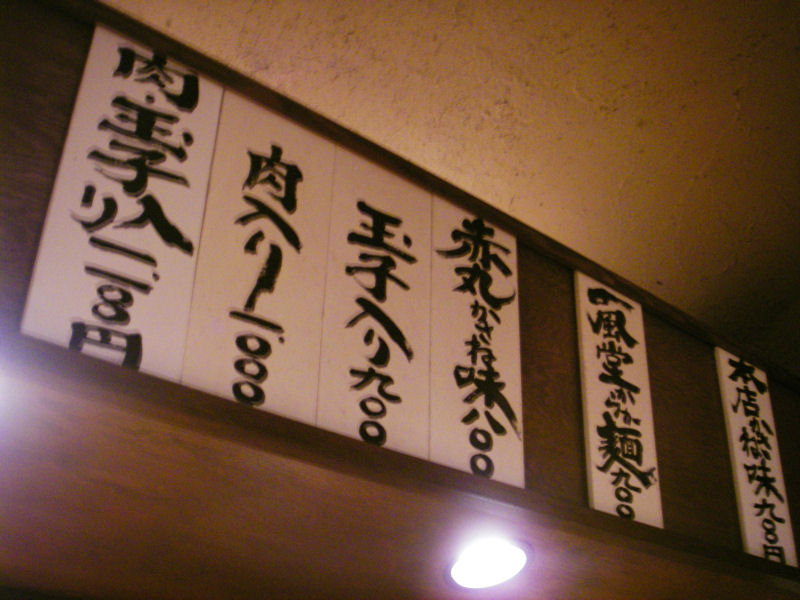 本店味九〇〇円
一風堂からか麺九〇〇
赤丸かさね味八〇〇
玉子入り九〇〇
肉入り一、〇〇〇
肉・玉子入り一、一〇〇円